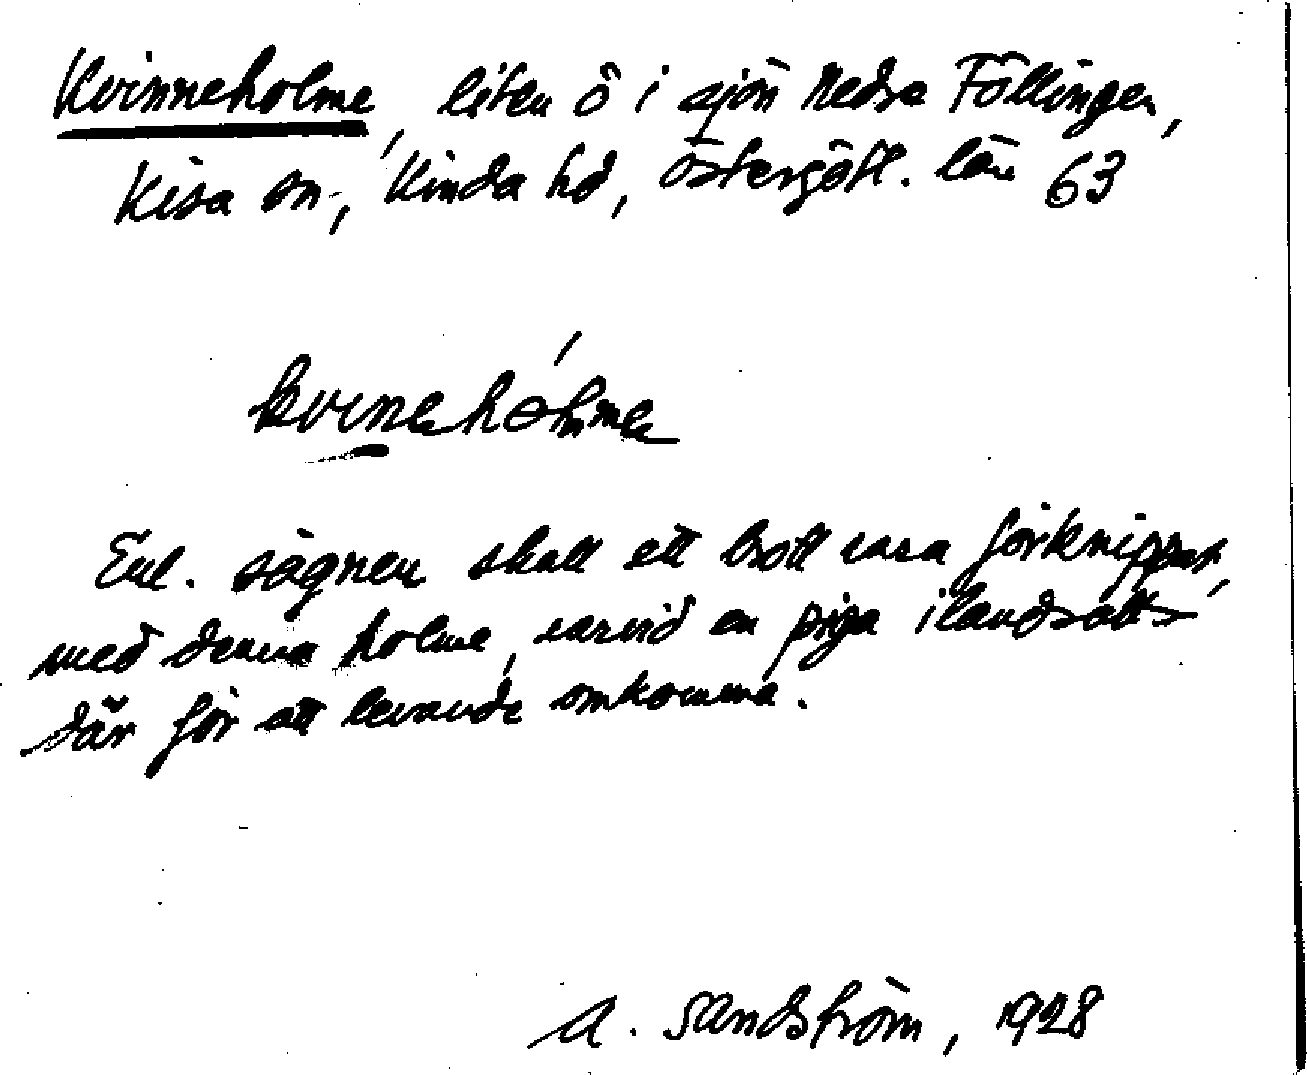 Kvinneholme, liten ö i sjön Nedre Föllingen,
Kisa sn., Kinda hd, Östergötl. län 63
kvinehólme
Enl. sägnen skall ett brott vara förknippat,
med denna holme, varvid en piga ilandsatts
där för att levande omkomma.
A. Sandström, 1928